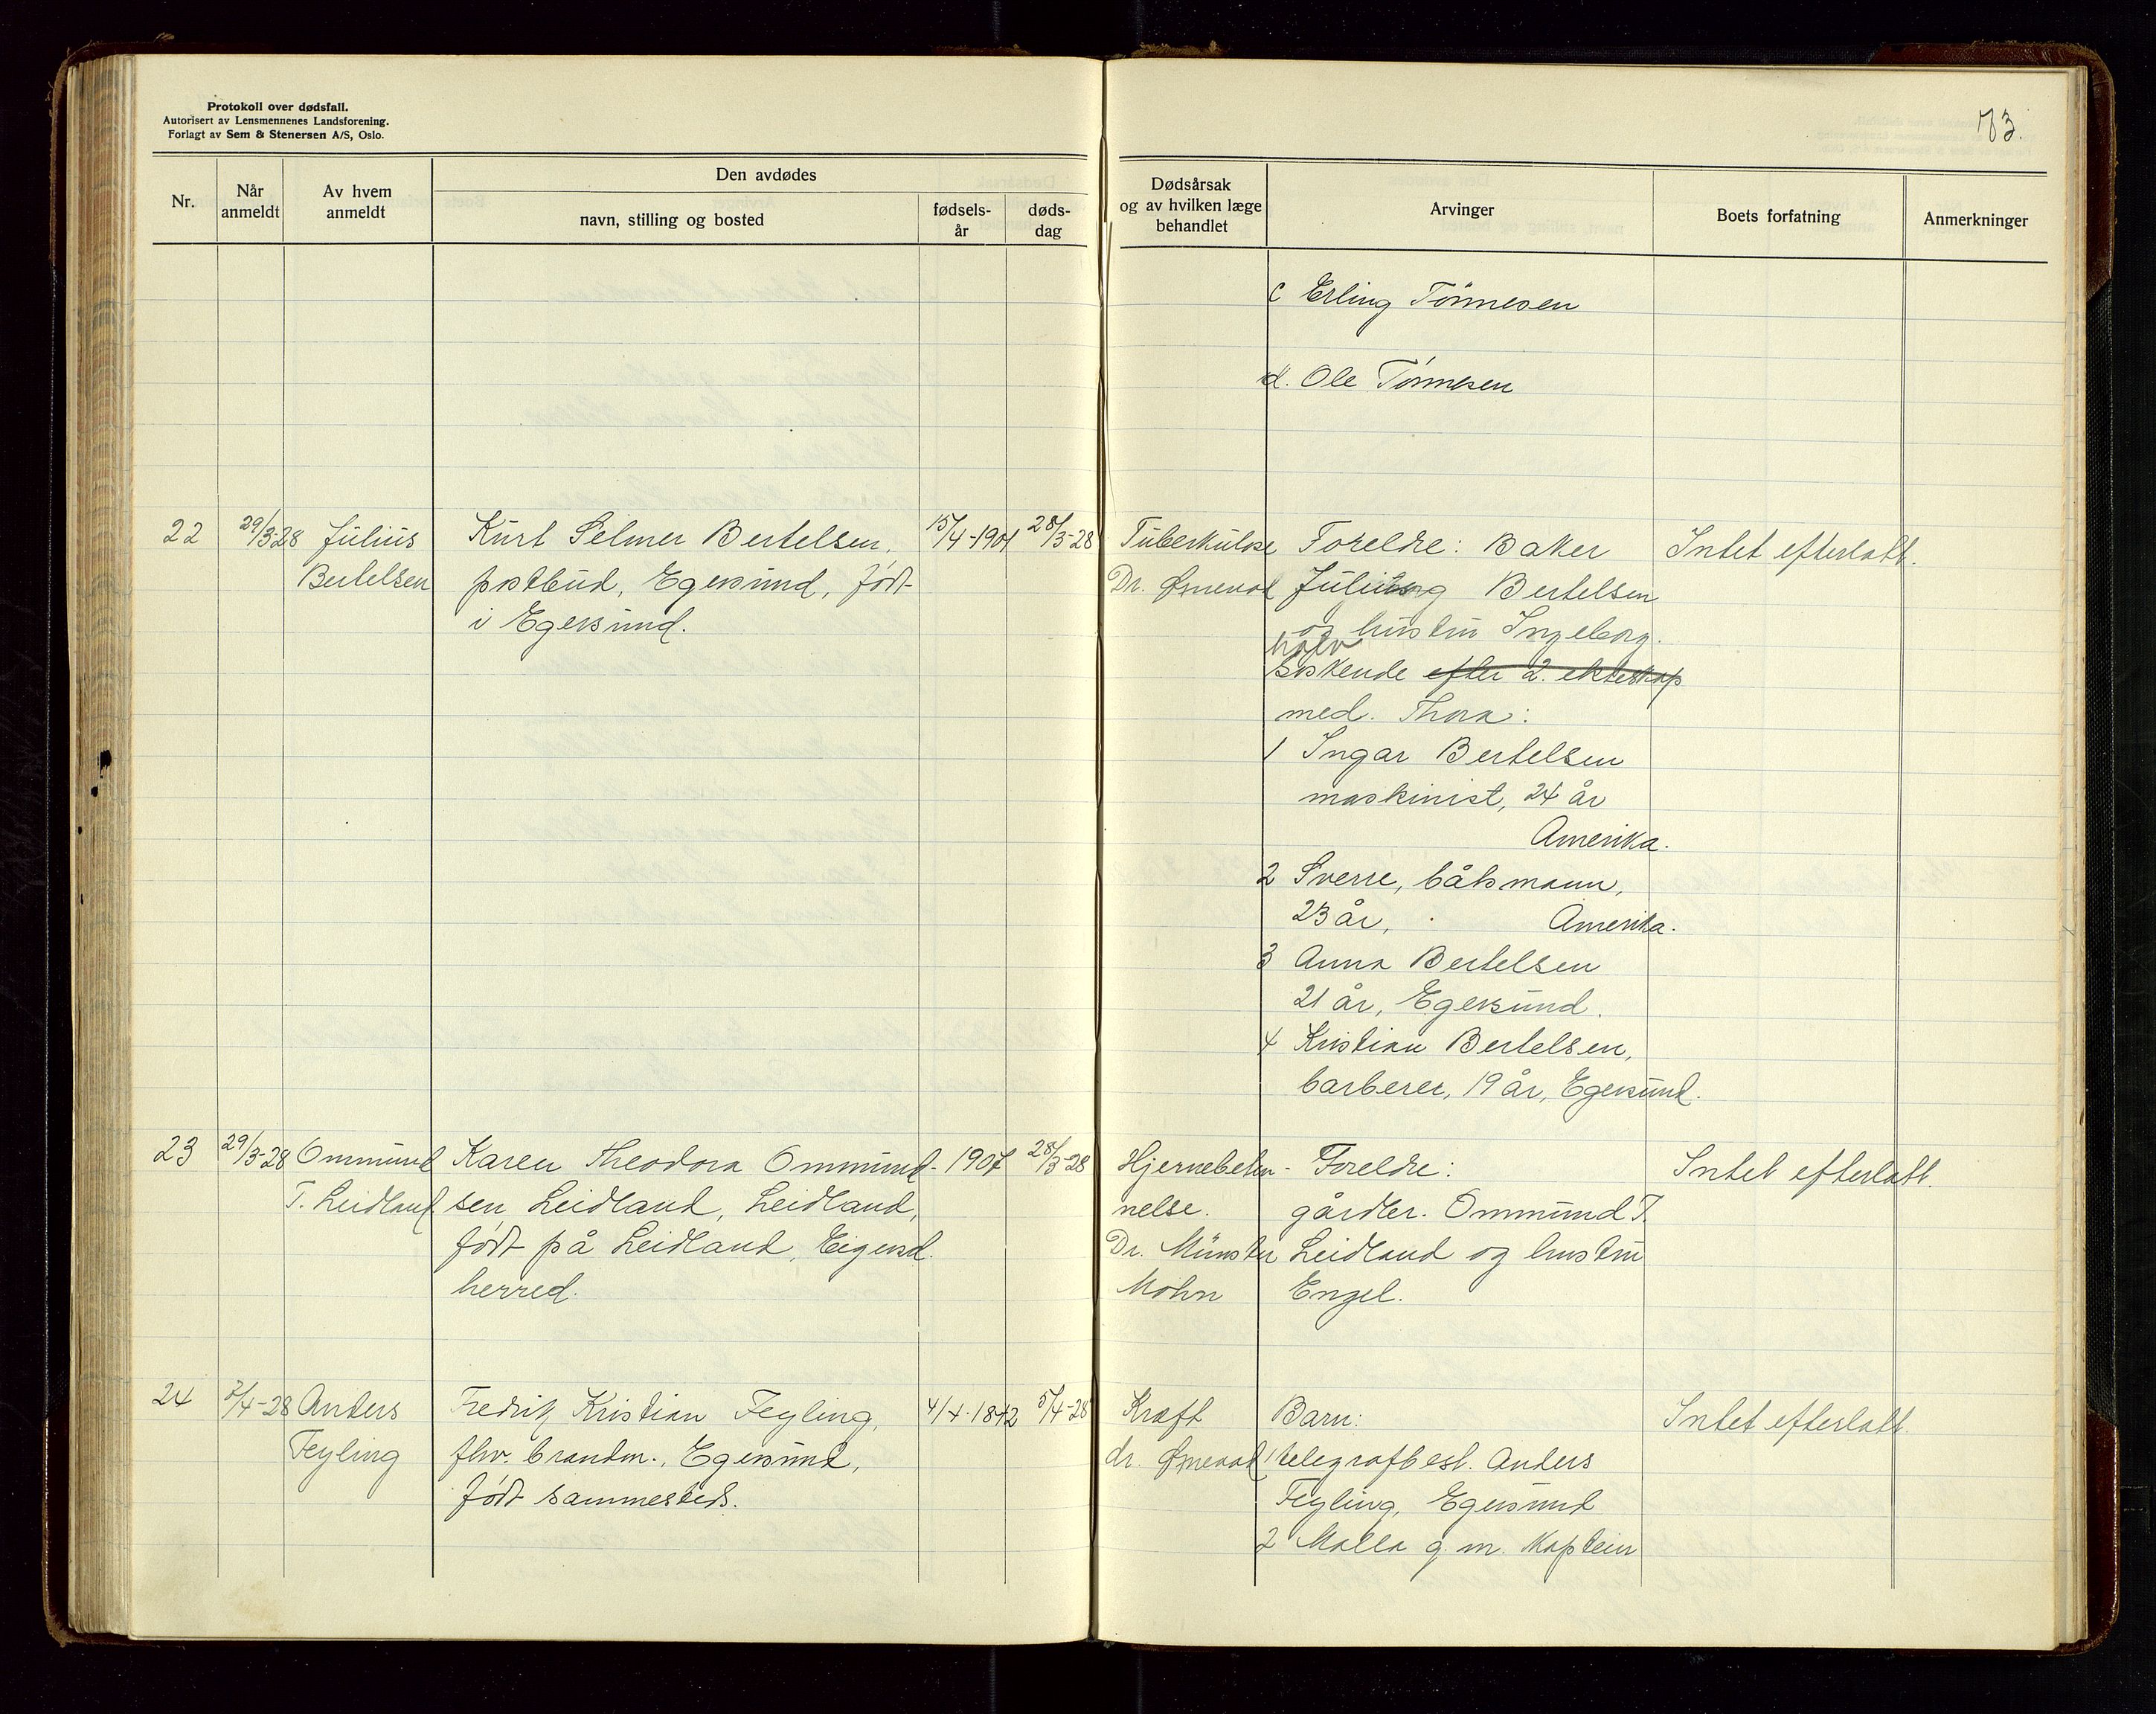 Protokoll over dødsfall.
Autorisert av Lensmennenes Landsforening.
Forlagt av Sem & Stenersen A/S, Oslo.
73.
Nr.
Når anmeldt
Av hvem anmeldt
Den avdødes
navn, stilling og bosted
fødsels-år
døds-dag
Dødsårsak og av hvilken læge behandlet
Arvinger
Boets forfatning
Anmerkninger
c Erling Tönnesen
d. Ole Tönnesen
22 29/3-28 Julius Kurt Selmer Bertelsen, 15/4-1901 28/3-28 Tuberkulose Foreldre: Baker Intet efterlatt.
Bertelsen postbud, Egersund, født Dr. Ørnevol Julius Bertelsen
i Egersund. og hustru Ingeborg.
halv
söskende efter 2. ekteskap
med. Thora:
1 Ingar Bertelsen
maskinist, 24 år
Amerika.
2 Sverre, båtsmann,
23 år, Amerika.
3 Anna Bertelsen
21 år, Egersund.
4 Kristian Bertelsen,
barberer, 19 år, Egersund.
23 29/3-28 Ommund Karen Theodora Ommund- 1907 28/3-28 Hjernebeten- Foreldre: Intet efterlatt.
T. Leidland sen Leidland, Leidland, nelse. gårdbr. Ommund T.
født på Leidland, Eigersd. Dr. Münster Leidland og hustru
herred. Mohn Engel.
24 7/4-28 Anders Fredrik Kristian Feyling, 4/4-1842 5/4-28 Kræft Barn: Intet efterlatt.
Feyling fhv. brandm., Egersund, dr. Ørnevol 1 telegrafbest. Anders
født sammesteds. Feyling, Egersund
2 Malla g. m. Kaptein